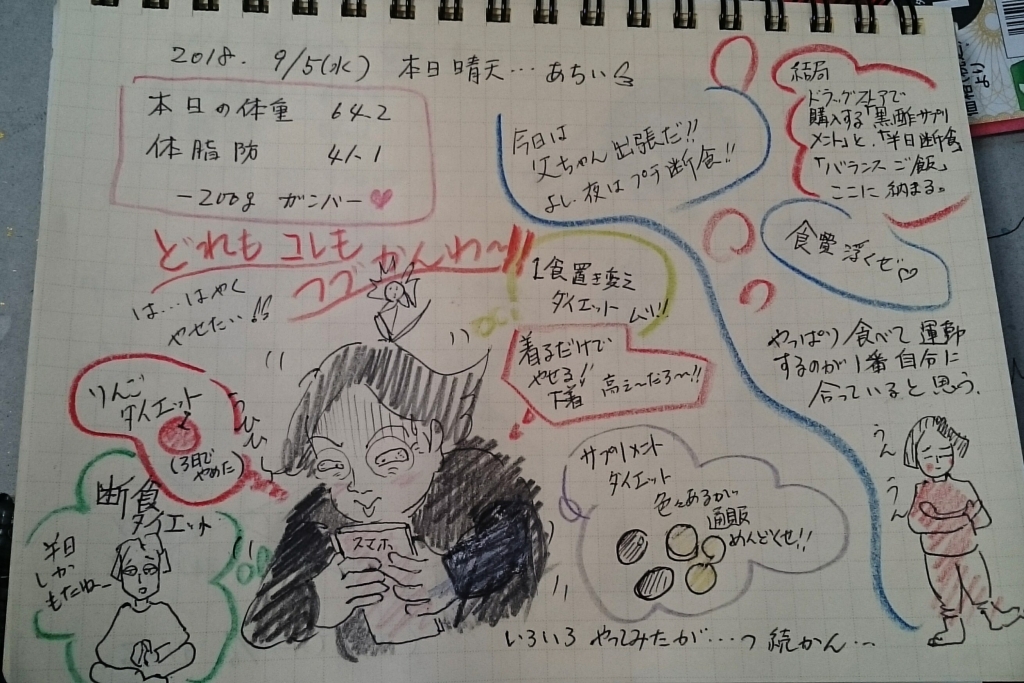 2018. 9/5(水) 本日晴天… あちぃ
本日の体重 64.2
体脂防 41.1
-200g ガンバー
どれもコレも
つづかんわ〜!!
は…はやく
やせたい!!
りんご
ダイエット
(3日で
やめた)
うひひ
断食
ダイエット
半日
しか
もたねー
スマホ
1食置き変え
ダイエット ムリ!!
着るだけで
やせる!!
下着 高ぇ〜だろ〜!!
サプリメント
ダイエット
色々あるが
通販
めんどくせ!!
いろいろ やってみたが…っ続かん…
今日は
父ちゃん出張だ!!
よし、夜はプチ断食!!
結局
ドラッグストアで
購入する「黒酢サプリ
メント」と、「半日断食
「バランスご飯」
ここに納まる。
食費浮くぜ
やっぱり食べて運動
するのが1番自分に
合っていると思う。
うん
うん